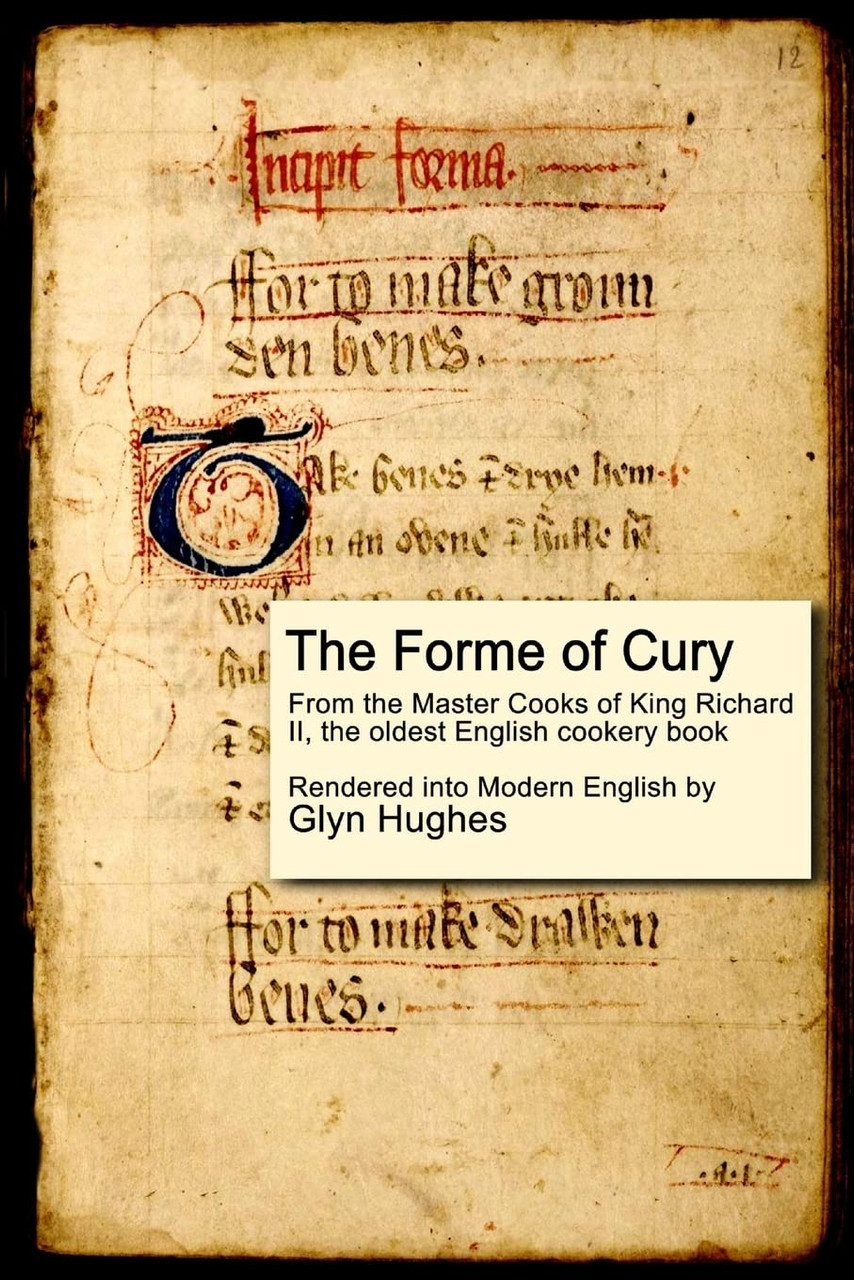 12
Incipit forma.
ffor to make groun
den benes.
Take benes & drye hem
in an ovene & hulle hē
well
hul
&
&
The Forme of Cury
From the Master Cooks of King Richard
II, the oldest English cookery book
Rendered into Modern English by
Glyn Hughes
ffor to make drawen
benes.